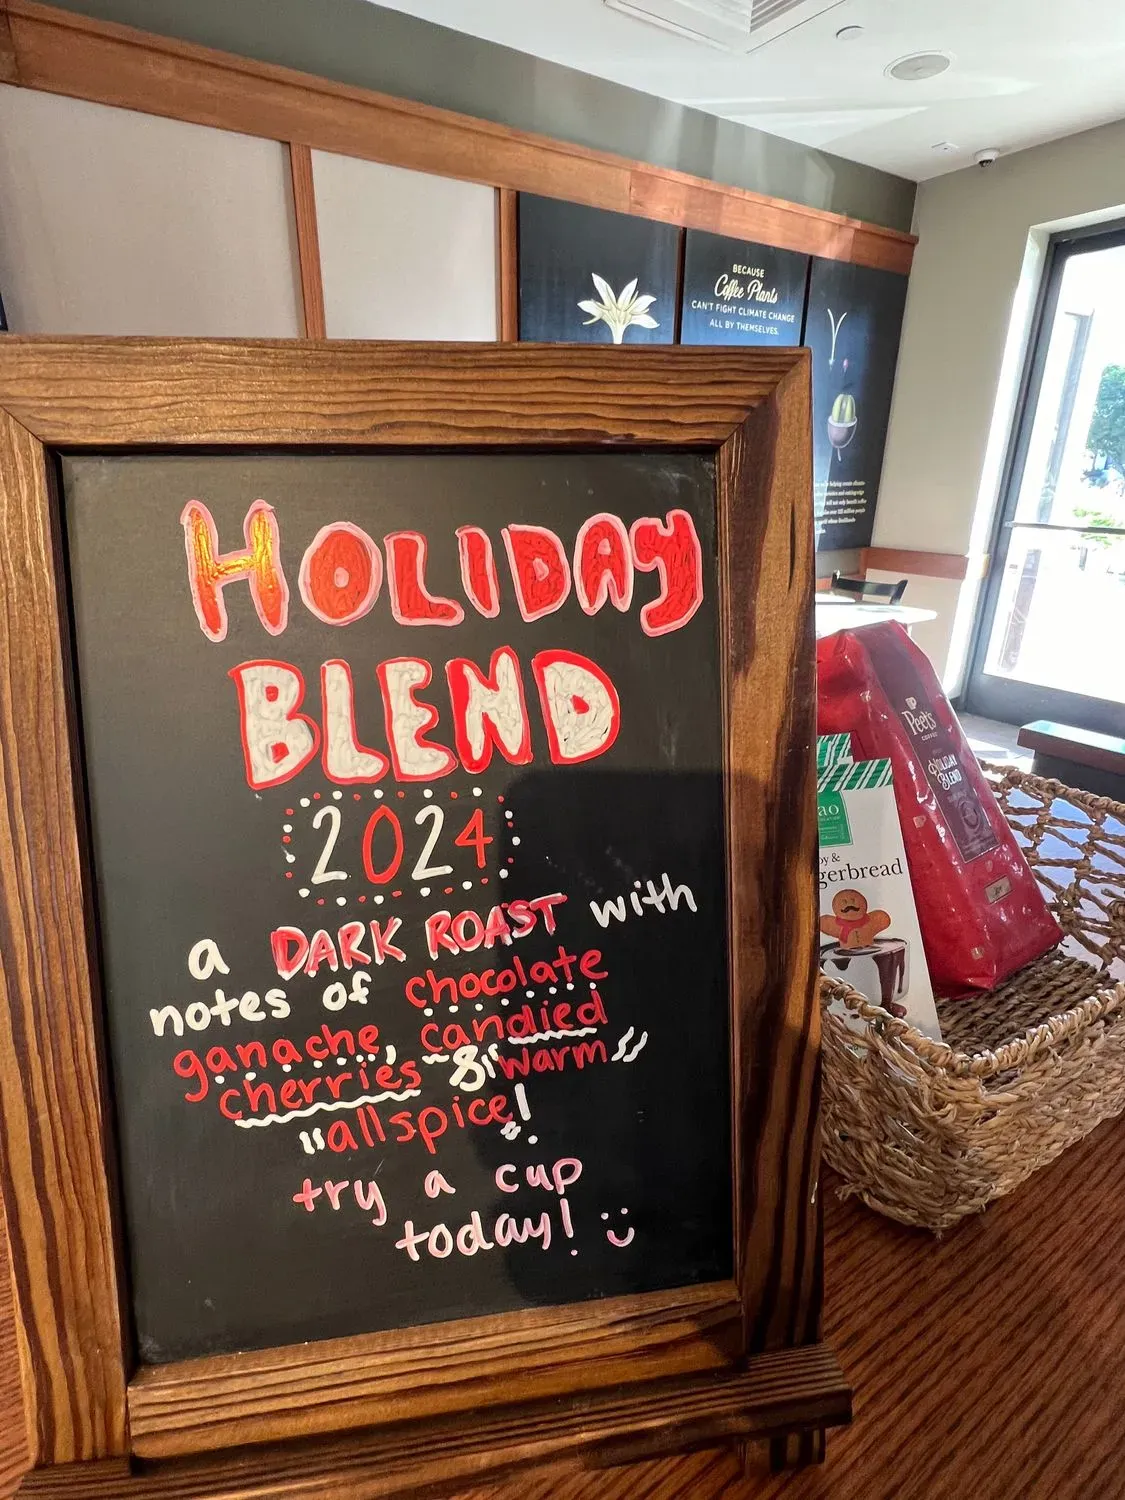 HOLIDAY
BLEND
2024
a DARK ROAST with
notes of chocolate
ganache, candied
cherries & warm
allspice!
try a cup
today!
BECAUSE
Coffee Plants
CAN'T FIGHT CLIMATE CHANGE
ALL BY THEMSELVES.
Peet's
COFFEE
HOLIDAY
BLEND